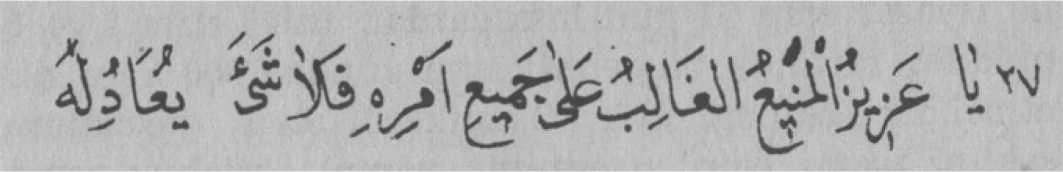 ٢٧ يَا عَزِيزُ الْمَنِيعُ الغَالِبُ عَلَى جَمِيعِ اَمْرِهِ فَلَا شَئَ يُعَادُِلهُ